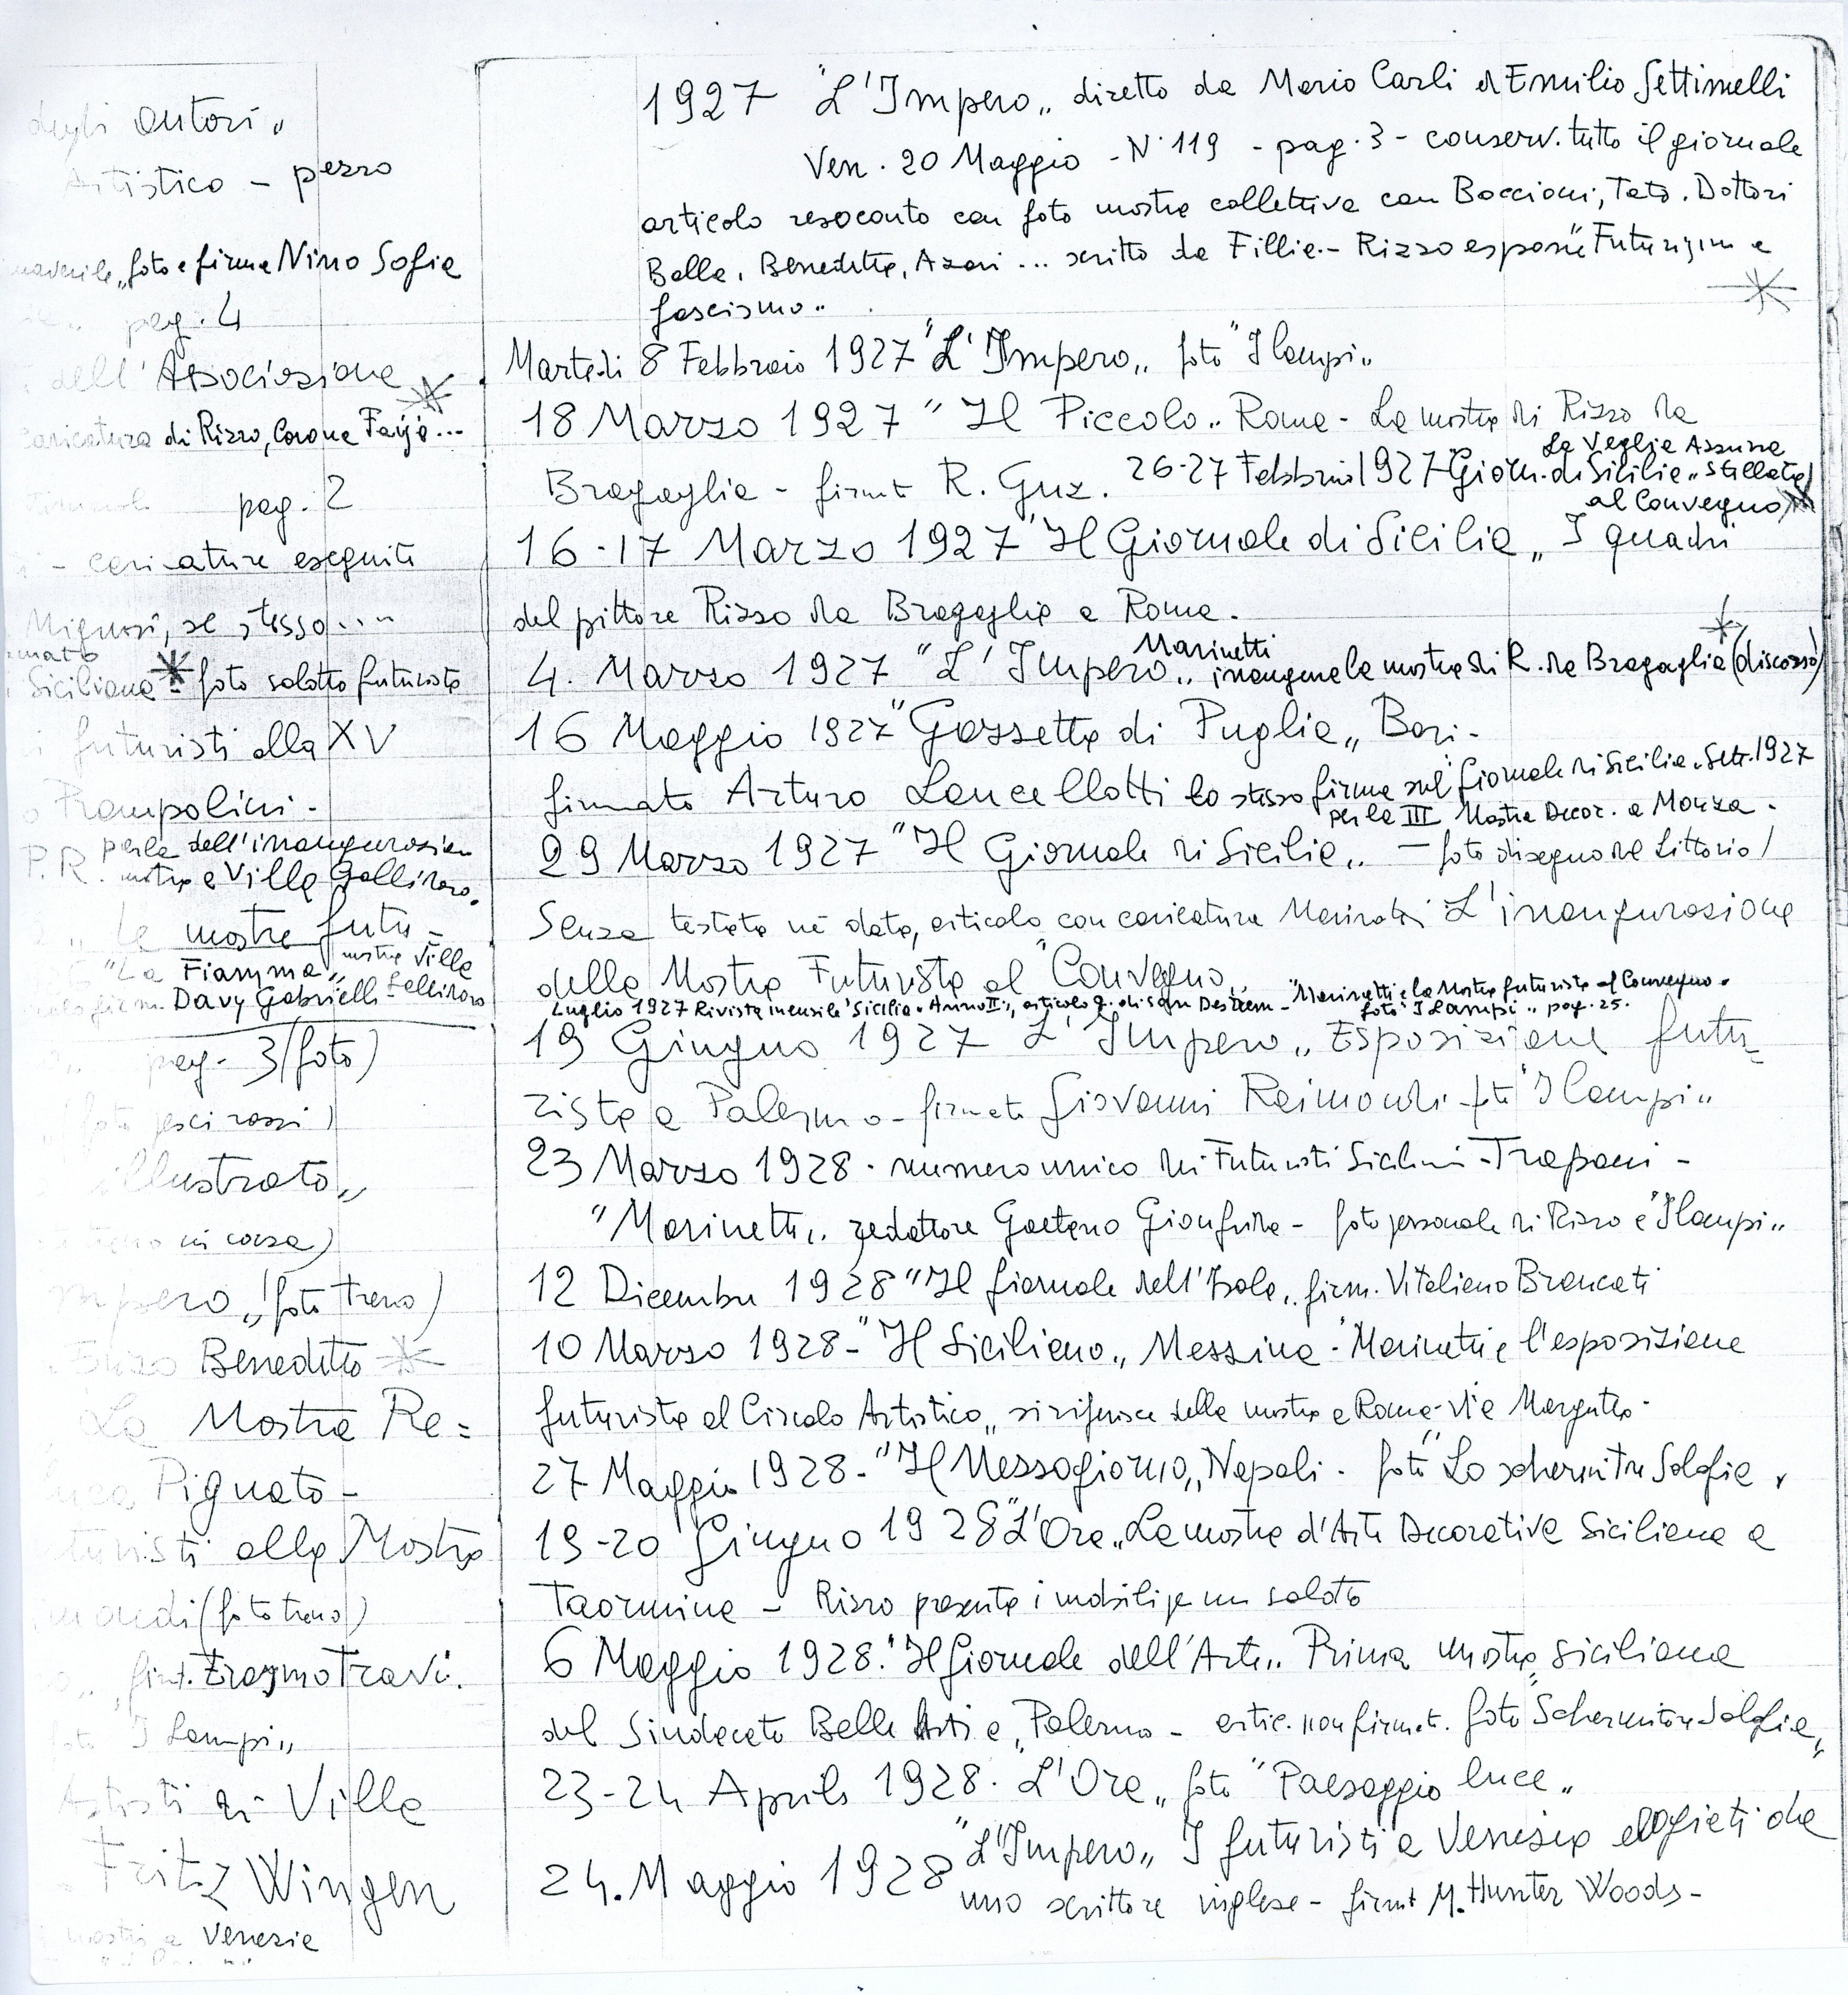 degli autori„
Artistico - pezzo
foto e firma Nino Sofia
pag. 4
dell'Associazione
caricatura di Rizzo, Corona
pag. 2
- caricature eseguite
se stesso....
Siciliana - foto salotto futurista
futuristi alla XV
Prampolini -
P.R. per la dell'inaugurazion
mostra a Villa Gallidoro.
„ La mostra futu-
"La Fiamma„ mostra Villa
firm. Davy Gabrielli - Gallidoro
pag. 3 (foto)
(foto pesci rossi)
illustrato„
in corsa)
(foto treno)
Enzo Benedetto
La Mostra Re=
Pignato -
alla Mostra
(foto treno)
„ firt. Erasmo Travi.
foto I Lampi„
Artisti di Villa
Fritz Wingen
a Venezia
1927 "L'Impero„ diretto da Mario Carli ed Emilio Settimelli
Ven. 20 Maggio - N° 119 - pag. 3 - conserv. tutto il giornale
articolo resoconto con foto mostra collettiva con Boccioni, Tato. Dottori
Balla, Benedetta, Azari ... scritto da Fillia.- Rizzo espone "Futurismo e
fascismo„
Martedi 8 Febbraio 1927 "L'Impero„ foto "I lampi„
18 Marzo 1927 "Il Piccolo„ Roma - La mostra di Rizzo da
Bragaglia - firmt R. Guz. 26-27 Febbraio 1927 Giorn. di Sicilia„ La Veglia Azzurra Stellata
al Convegno
16-17 Marzo 1927 "Il Giornale di Sicilia„ I quadri
del pittore Rizzo da Bragaglia a Roma.
4. Marzo 1927 "L'Impero„ Marinetti inaugura la mostra di R. da Bragaglia (discorso)
16 Maggio 1927 "Gazzetta di Puglia„ Bari -
firmato Arturo Lancellotti lo stesso firma sul "Giornale di Sicilia„ Sett. 1927
per la III Mostra Decor. a Monza -
29 Marzo 1927 "Il Giornale di Sicilia„ - foto disegno del Littorio)
Senza testata nè data, articolo con caricatura Marinetti L'inaugurazione
della Mostra Futurista al "Convegno„
Luglio 1927 Rivista mensile "Sicilia„ Anno II°, articolo - "Marinetti e la Mostra futurista al Convegno„
foto "I Lampi„ pag. 25.
19 Giugno 1927 L'Impero„ Esposizione futu-
rista a Palermo - firmata Giovanni Raimondi - fot "I lampi„
23 Marzo 1928 - numero unico dei Futuristi Siciliani - Trapani -
"Marinetti„ redattore Gaetano - foto personale di Rizzo e "I lampi„
12 Dicembre 1928 "Il Giornale dell'Isola„ firm. Vitaliano Brancati
10 Marzo 1928 - "Il Siciliano„ Messina - "Marinetti e l'esposizione
futurista al Circolo Artistico„ si riferisce della mostra a Roma - Via Margutta -
27 Maggio 1928 - "Il Mezzogiorno„ Napoli - foto "Lo schermitore Salafia„
19-20 Giugno 1928 "L'Ora„ La mostra d'Arte Decorativa Siciliana a
Taormina - Rizzo presenta i mobili per un salotto
6 Maggio 1928. "Il Giornale dell'Arte„ Prima mostra siciliana
del Sindacato Belle Arti a Palermo - artic. non firmat. foto "Schermitore Salafia„
23-24 Aprile 1928. "L'Ora„ foto "Paesaggio luce„
24. Maggio 1928 "L'Impero„ I futuristi a Venezia elogiati da
uno scrittore inglese - firmt M. Hunter Woods -